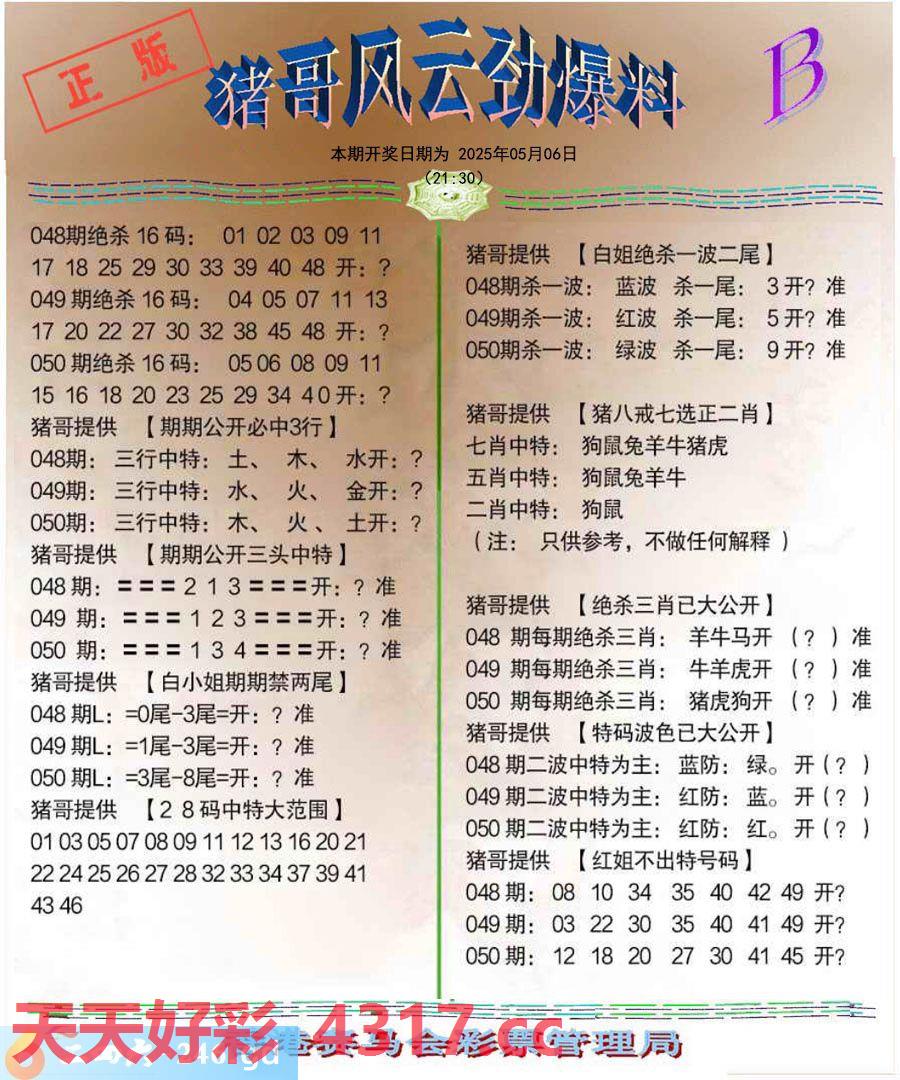 正版
猪哥风云劲爆料
B
本期开奖日期为 2025年05月06日
(21:30)
048期绝杀16码: 01 02 03 09 11
17 18 25 29 30 33 39 40 48 开: ?
049期绝杀16码: 04 05 07 11 13
17 20 22 27 30 32 38 45 48 开: ?
050期绝杀16码: 05 06 08 09 11
15 16 18 20 23 25 29 34 40开: ?
猪哥提供 【期期公开必中3行】
048期: 三行中特: 土、 木、 水开: ?
049期: 三行中特: 水、 火、 金开: ?
050期: 三行中特: 木、 火、 土开: ?
猪哥提供 【期期公开三头中特】
048期: ===213===开: ? 准
049 期: ===123===开: ? 准
050 期: ===134===开: ? 准
猪哥提供 【白小姐期期禁两尾】
048期L: =0尾-3尾=开: ? 准
049期L: =1尾-3尾=开: ? 准
050期L: =3尾-8尾=开: ? 准
猪哥提供 【28码中特大范围】
01 03 05 07 08 09 11 12 13 16 20 21
22 24 25 26 27 28 32 33 34 37 39 41
43 46
猪哥提供 【白姐绝杀一波二尾】
048期杀一波: 蓝波 杀一尾: 3开? 准
049期杀一波: 红波 杀一尾: 5开? 准
050期杀一波: 绿波 杀一尾: 9开? 准
猪哥提供 【猪八戒七选正二肖】
七肖中特: 狗鼠兔羊牛猪虎
五肖中特: 狗鼠兔羊牛
二肖中特: 狗鼠
(注: 只供参考，不做任何解释)
猪哥提供 【绝杀三肖已大公开】
048 期每期绝杀三肖: 羊牛马开 (?)准
049 期每期绝杀三肖: 牛羊虎开 (?)准
050 期每期绝杀三肖: 猪虎狗开 (?)准
猪哥提供 【特码波色已大公开】
048期二波中特为主: 蓝防: 绿。开(?)
049期二波中特为主: 红防: 蓝。开(?)
050期二波中特为主: 红防: 红。开(?)
猪哥提供 【红姐不出特号码】
048期: 08 10 34 35 40 42 49 开?
049期: 03 22 30 35 40 41 49 开?
050期: 12 18 20 27 30 41 45 开?
天天好彩 4317.cc
港赛马会彩票管理局